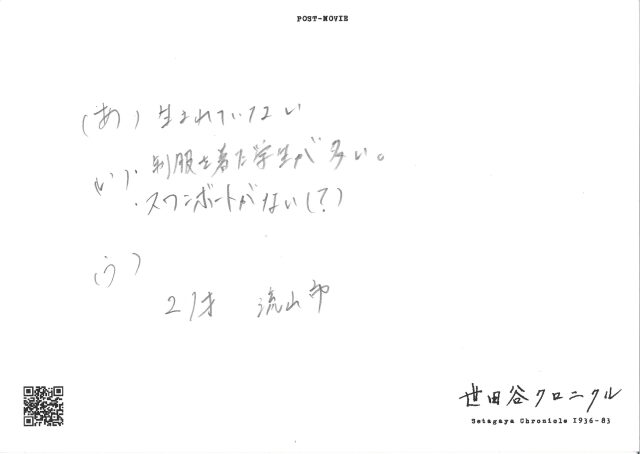 POST-MOVIE
(あ) 生まれていない
(い)・制服を着た学生が多い。
・スワンボートがない(?)
(う)
21才 流山市
世田谷クロニクル
Setagaya Chronicle 1936-83